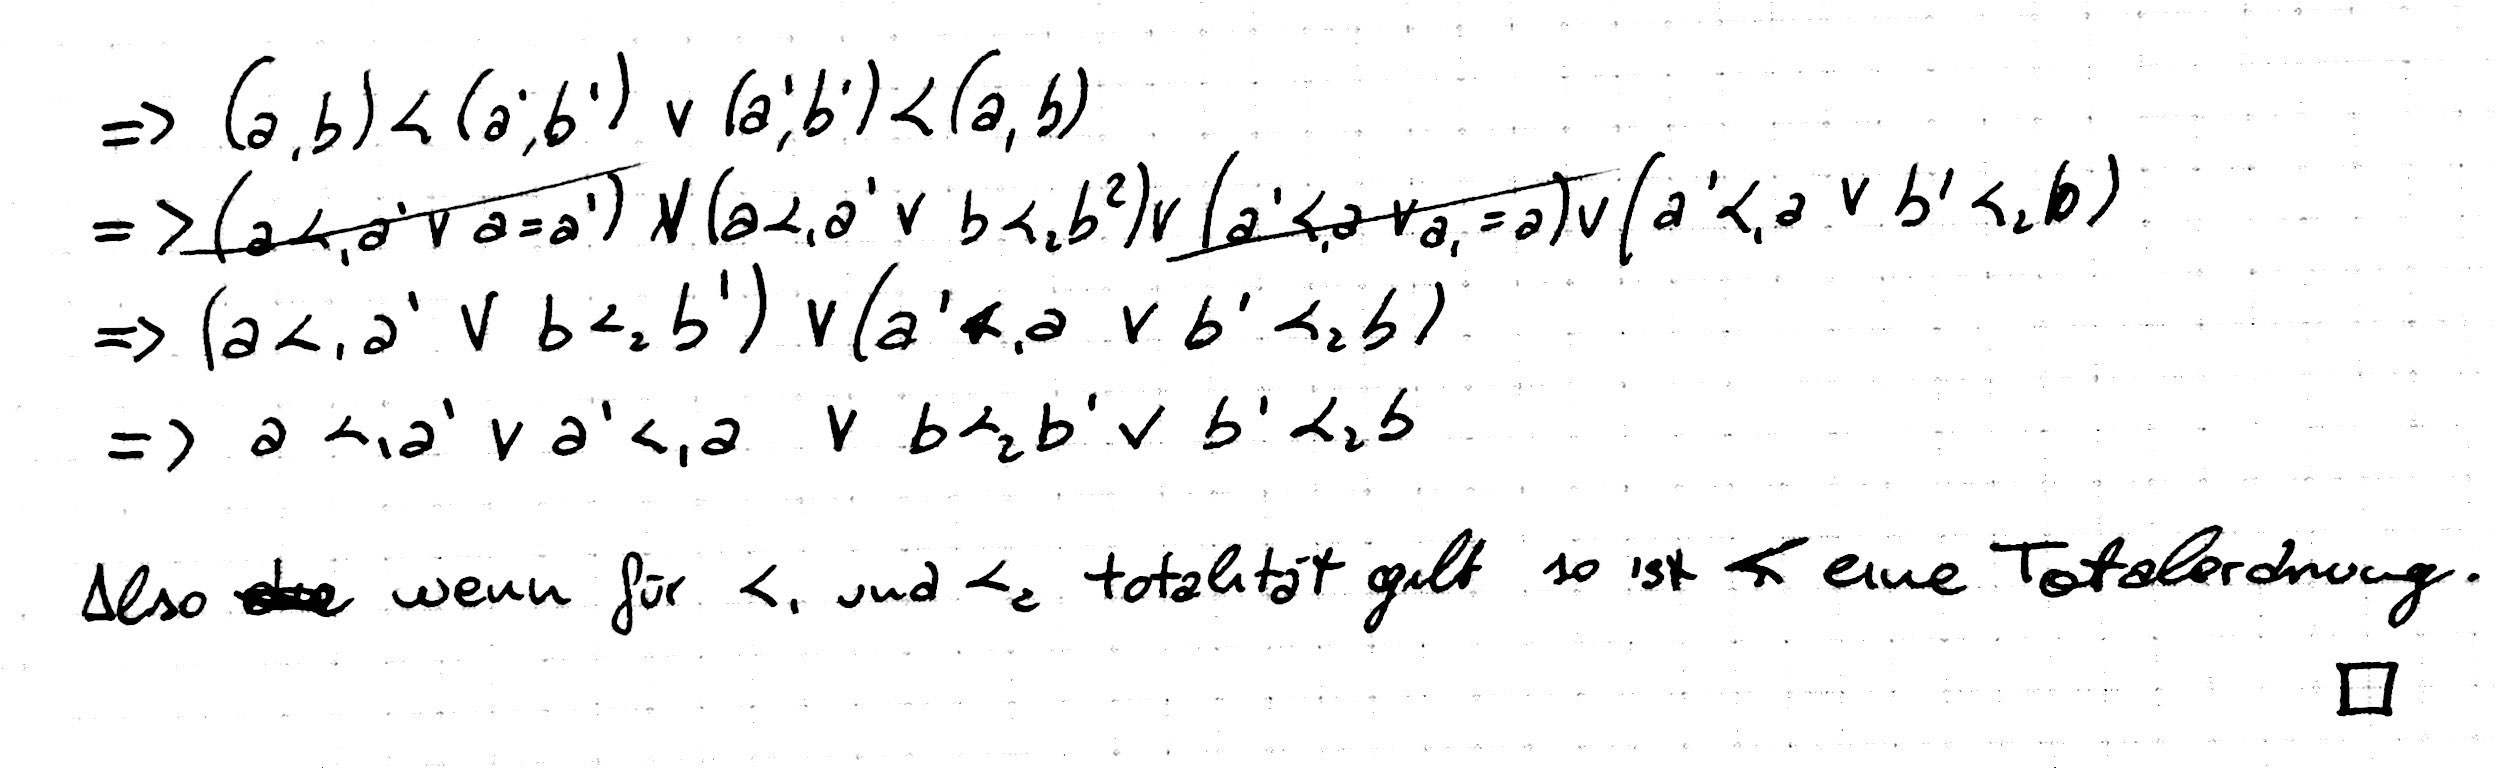 => (a,b) < (a',b') ∨ (a',b') < (a,b)
=> (a <₁ a' ∨ a = a') ∨ (a <₁ a' ∨ b <₂ b²) ∨ (a' <₁ a ∨ a₁ = a) ∨ (a' <₁ a ∨ b' <₂ b)
=> (a <₁ a' ∨ b <₂ b') ∨ (a' <₁ a ∨ b' <₂ b)
=> a <₁ a' ∨ a' <₁ a ∨ b <₂ b' ∨ b' <₂ b
Also wenn für <₁ und <₂ totalität gilt so ist < eine Totalordnung.
□